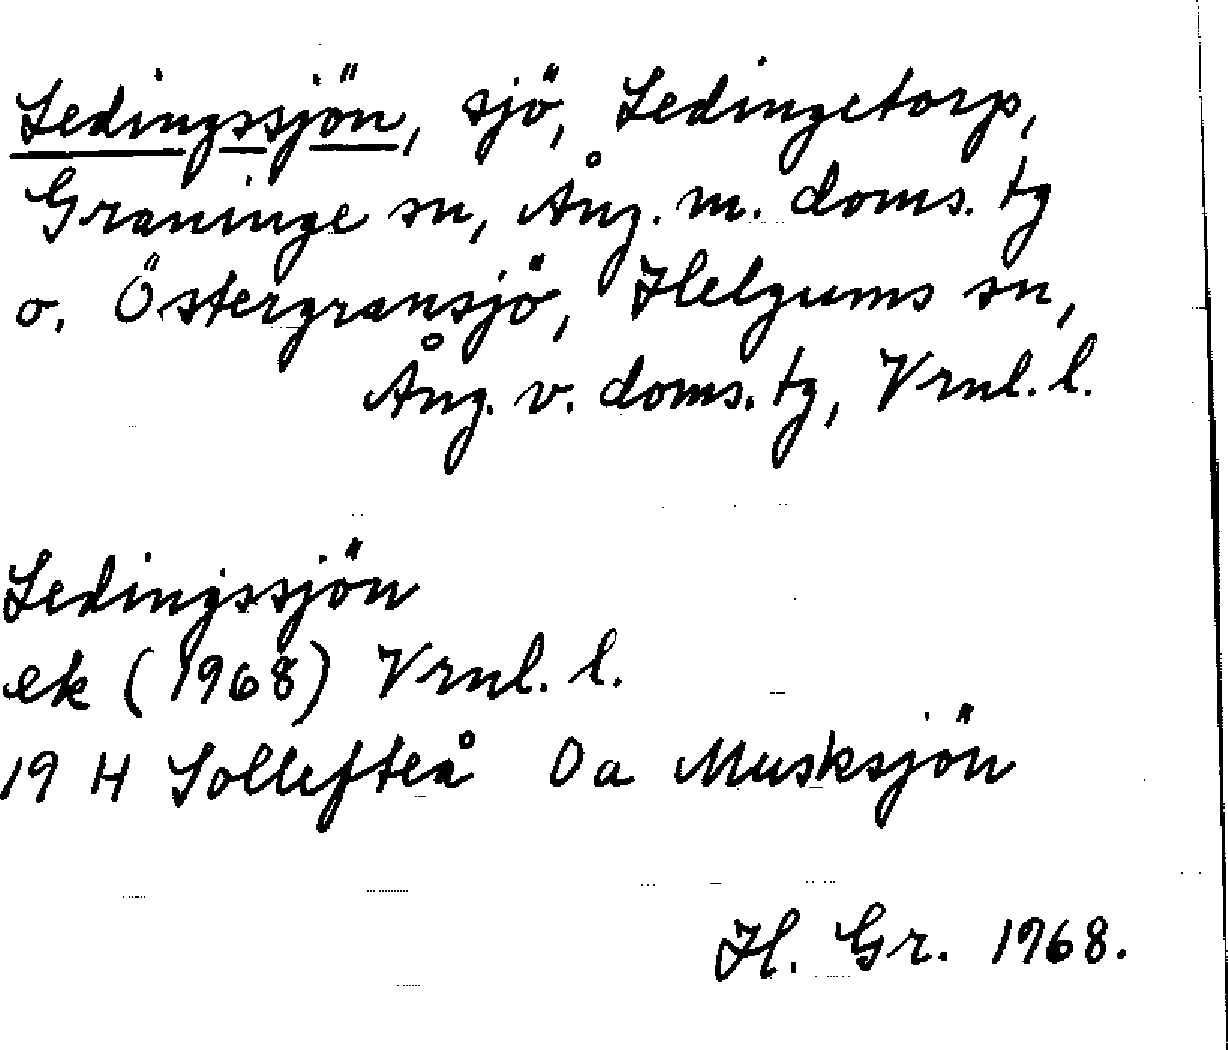 Ledingssjön, sjö, Ledingetorp,
Graninge sn, Ång. m. doms. tg
o. Östergransjö, Helgums sn,
Ång. v. doms. tg, Vrnl. l.
Ledingssjön
ek (1968) Vrnl. l.
19 H Sollefteå 0a Musksjön
H. Gr. 1968.